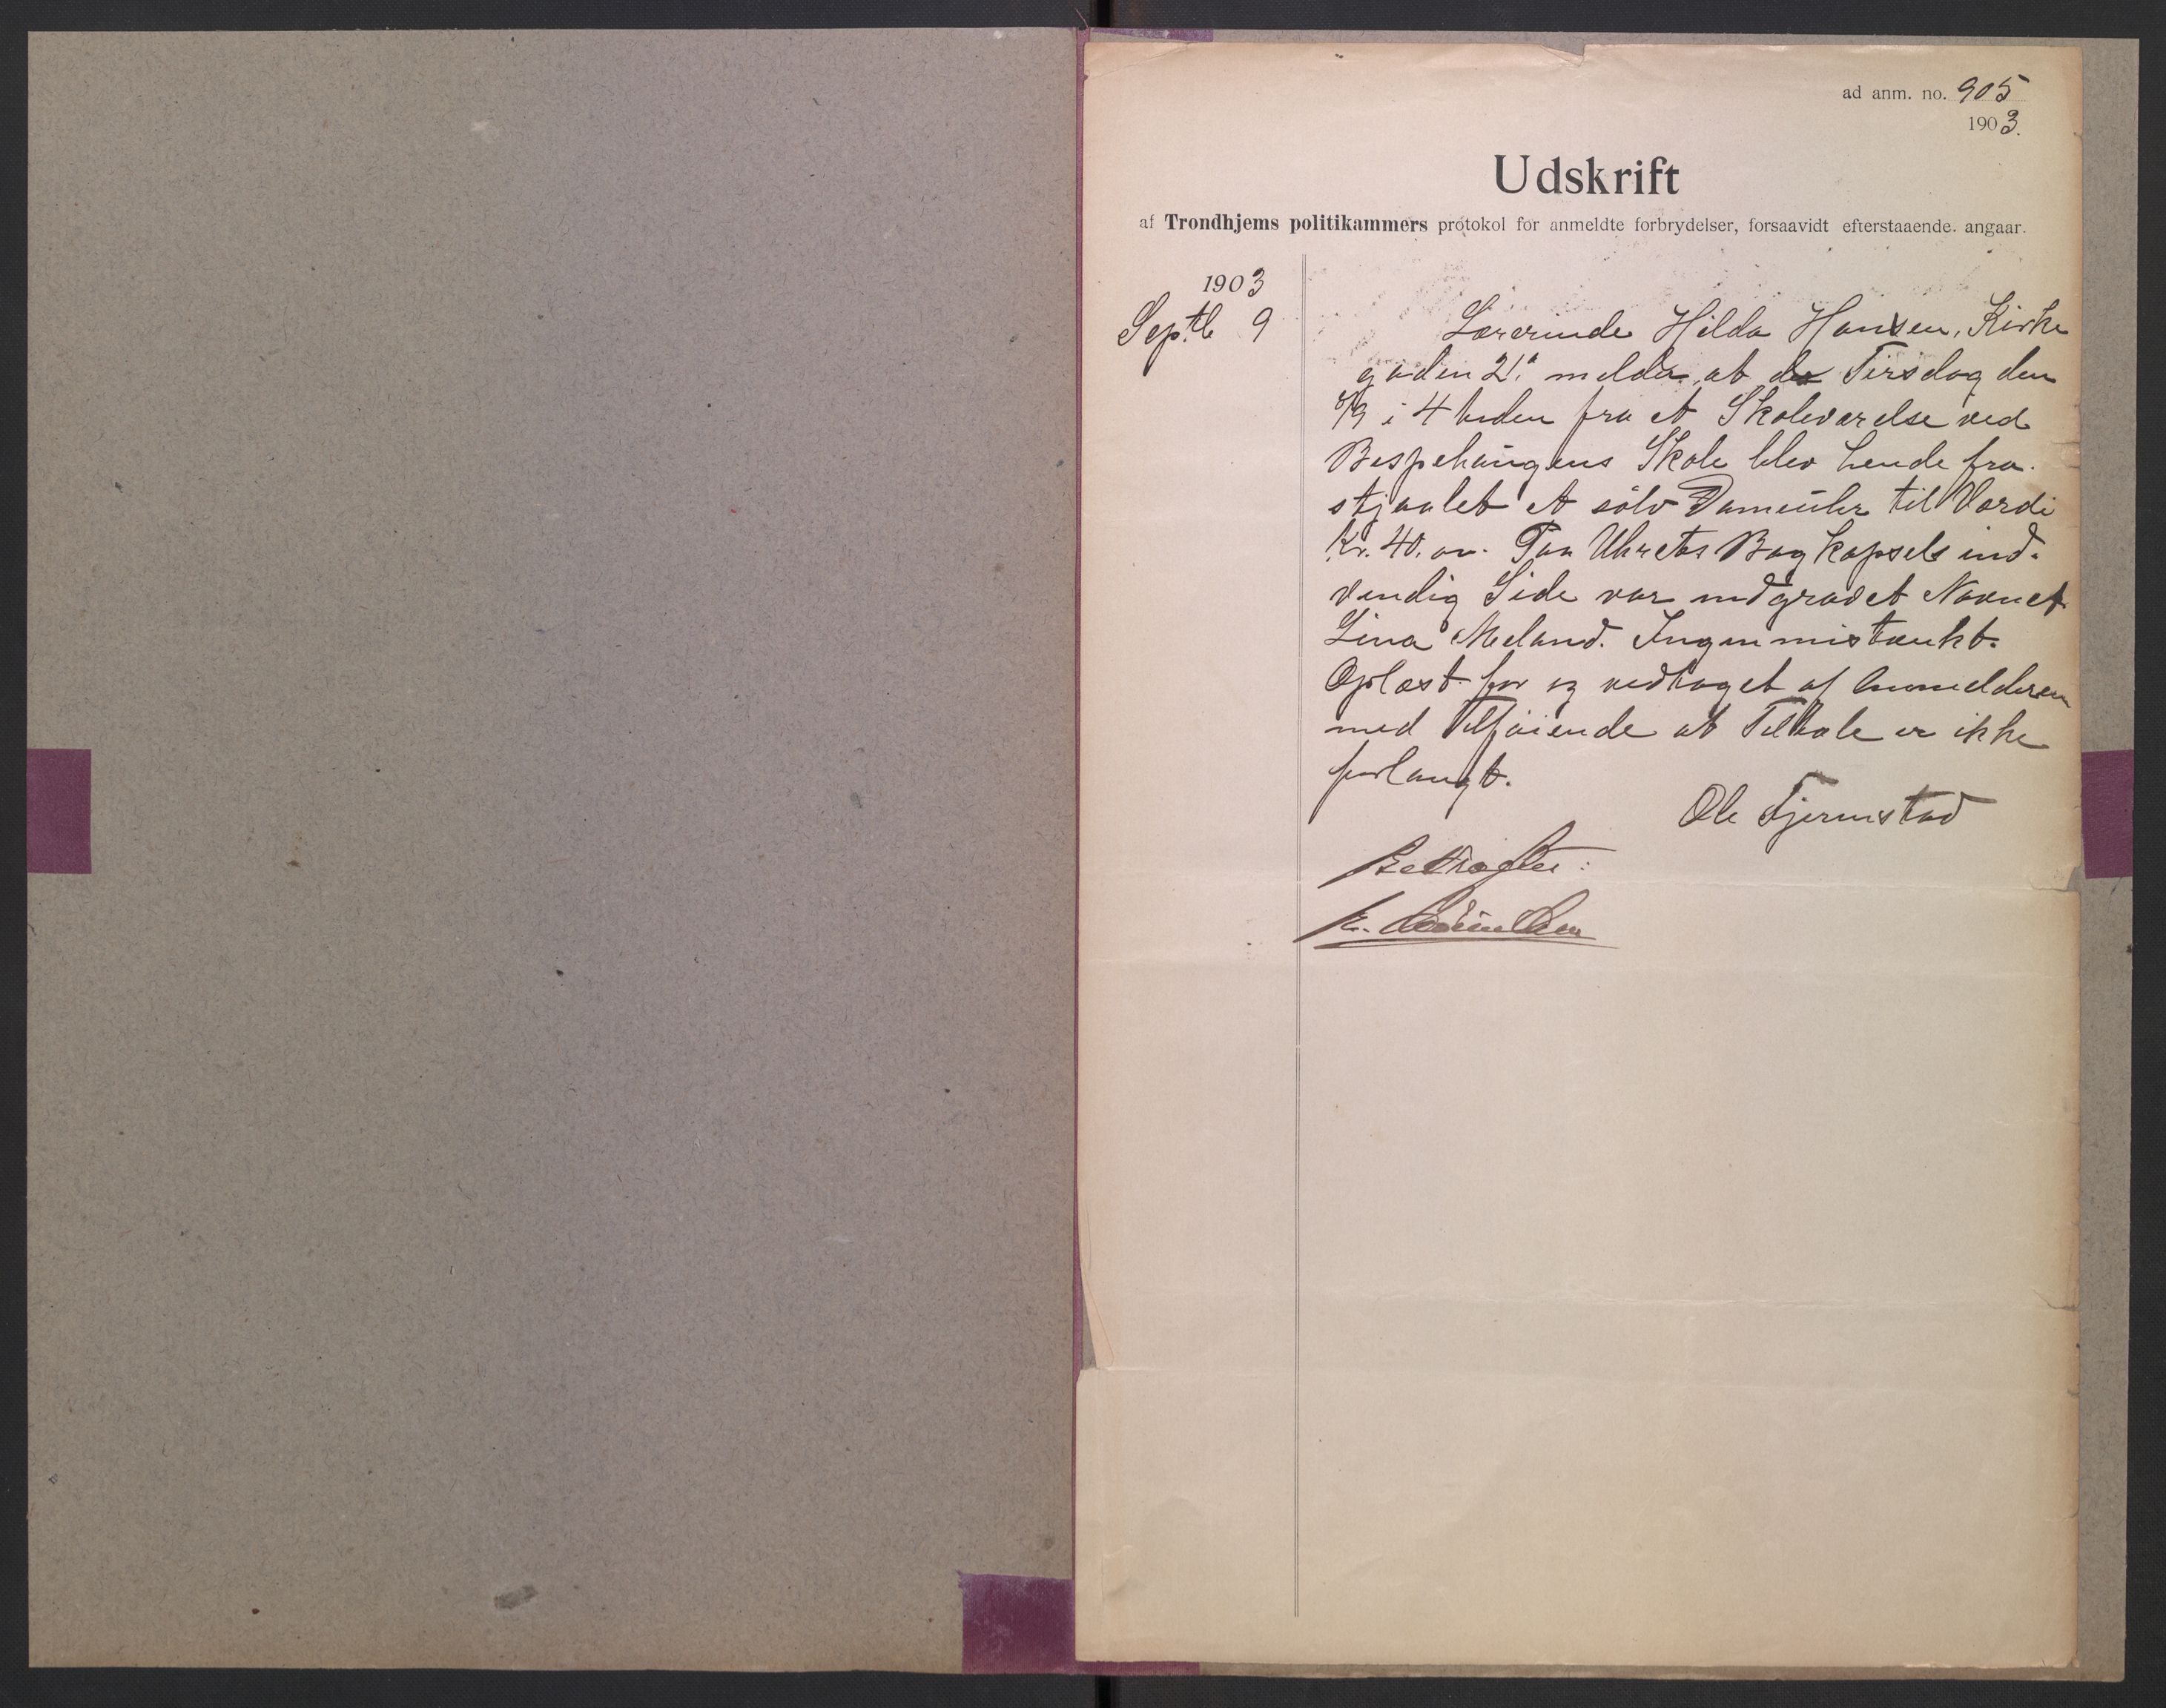 ad anm. no. 905
1903.
Udskrift
af Trondhjems politikammers protokol for anmeldte forbrydelser, forsaavidt efterstaaende angaar.
1903
Septb 9
Lærerinde Hilda Hansen, Kirke
gaden 21.a melder, at der Tirsdag den
8/9 i 4 tiden fra et Skoleværelse ved
Bispehaugens Skole blev hende fra-
stjaalet et sølv Dameuhr til Værdi
Kr. 40. Paa Uhrets Bagkapsels ind-
vendig Side var indgravet Navnet
Lina Meland. Ingen mistænkt.
Oplæst for og vedtaget af Anmelderen
med Tilføiende at Tiltale er ikke
forlangt.
Ole Tjermstad
Bekræftes: